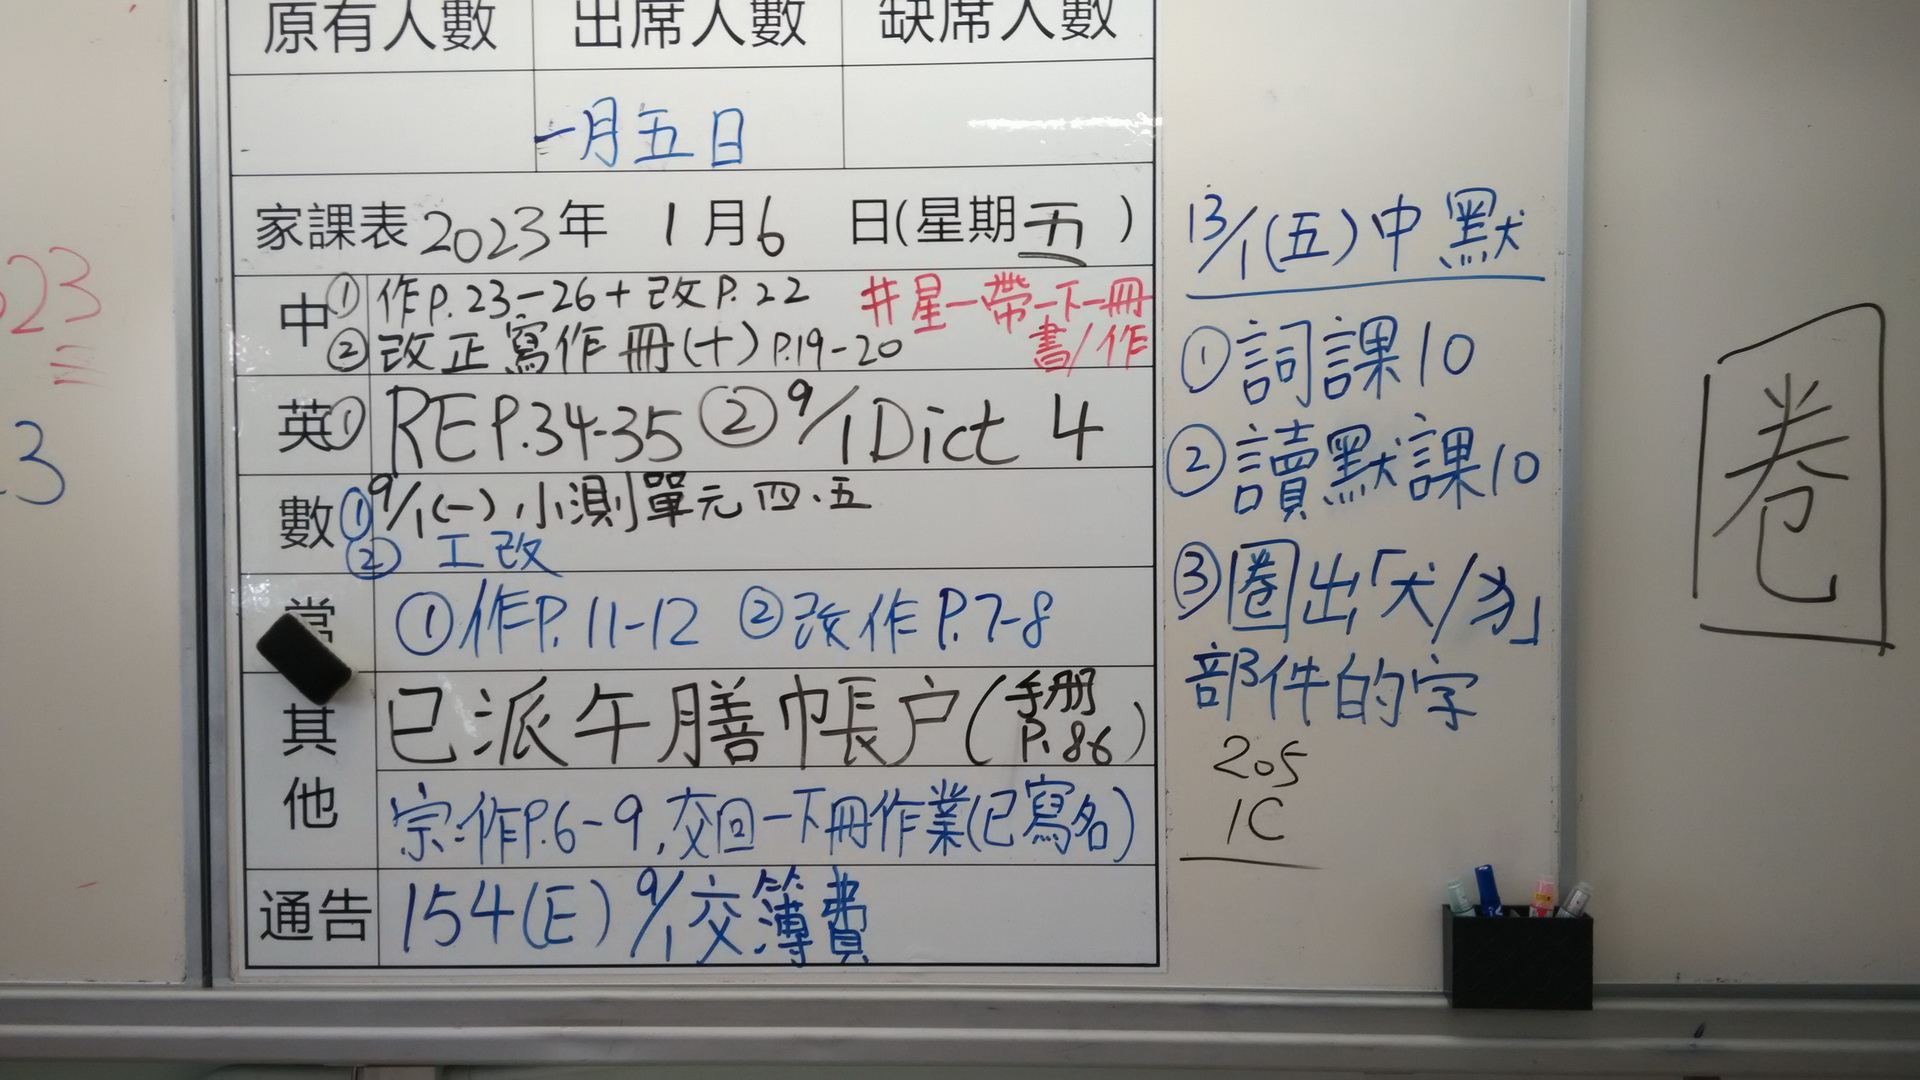 原有人數 出席人數 缺席人數
一月五日
家課表 2023年 1月6日(星期五)
中 ①作P.23-26+改P.22 #星一帶一下一冊
②改正寫作冊(十)P.19-20 書/作
英 ①REP.34-35 ②9/1Dict 4
數 ①9/1(一)小測單元四、五
②工改
常 ①作P.11-12 ②改作P.7-8
其他 已派午膳帳户(手册P.86)
宗:作P.6-9,交回一下冊作業(已寫名)
通告 154(E) 9/1交簿費
13/1(五)中默
①詞課10
②讀默課10
③圈出「犬/犭」
部件的字
205
1C
圈
23
3